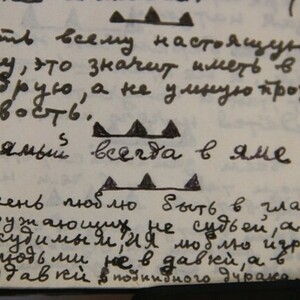 ть всему настоящую
у, это значит иметь в
брую, а не умную про
вость.
ямый всегда в яме
ень люблю быть в гла
ружающих не судьей, а
судимым, я люблю
людьми не в давки, а в
давки
дурака